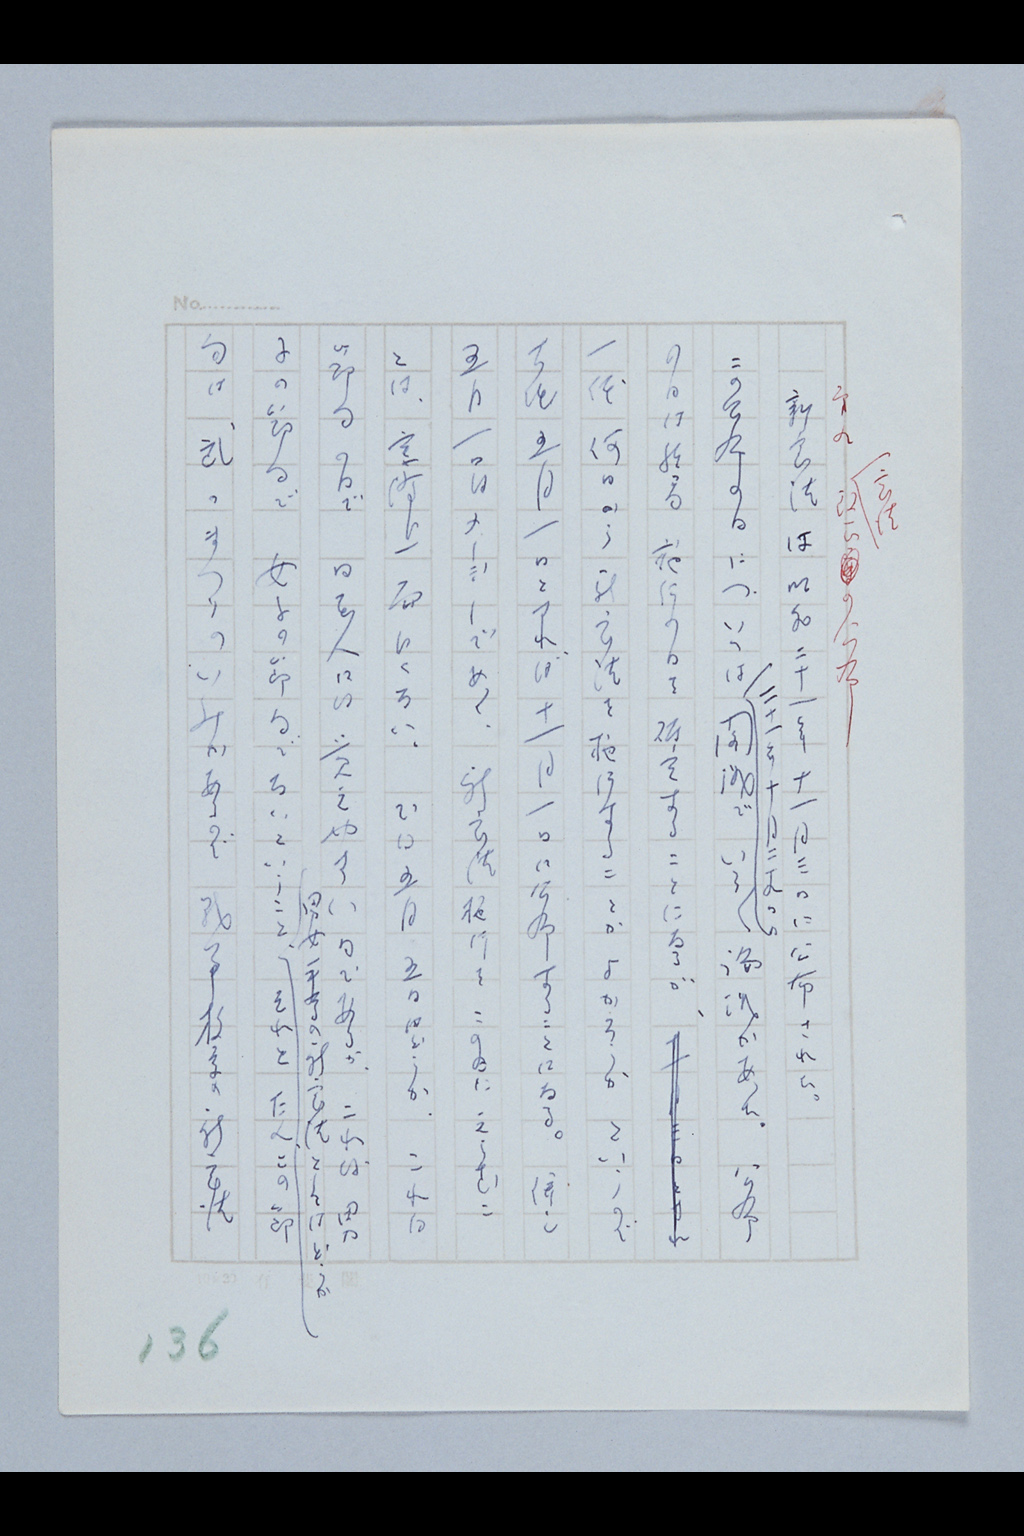 憲法
新憲法は昭和二十一年十一月三日に公布された。
この公布の日については閣議でいろいろ論議があった。公布
二十一年十月二十九日
の日は施行の日を確定することになるが、
一体何日から新憲法を施行することがよかろうかというので
五月一日とすれば十一月一日に公布することになる。併し
五月一日はメーデーであって、新憲法施行をこの日にえらぶこ
とは、実際上面白くない。では五月五日はどうか。これは
節句の日で日本人には覚えやすい日であるが、これは男
子の節句で女子の節句でないということ、それとたんごの節
男女平等の新憲法としてはどうか
句は武のまつりのいみがあるので戦争放棄の新憲法
No.
136